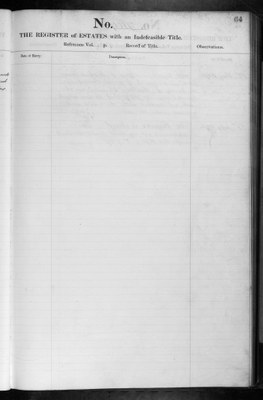 64
No.
THE REGISTER of ESTATES with an Indefeasible Title.
Reference Vol. p. Record of Title.
Observations.
Date of Entry.
Transaction.